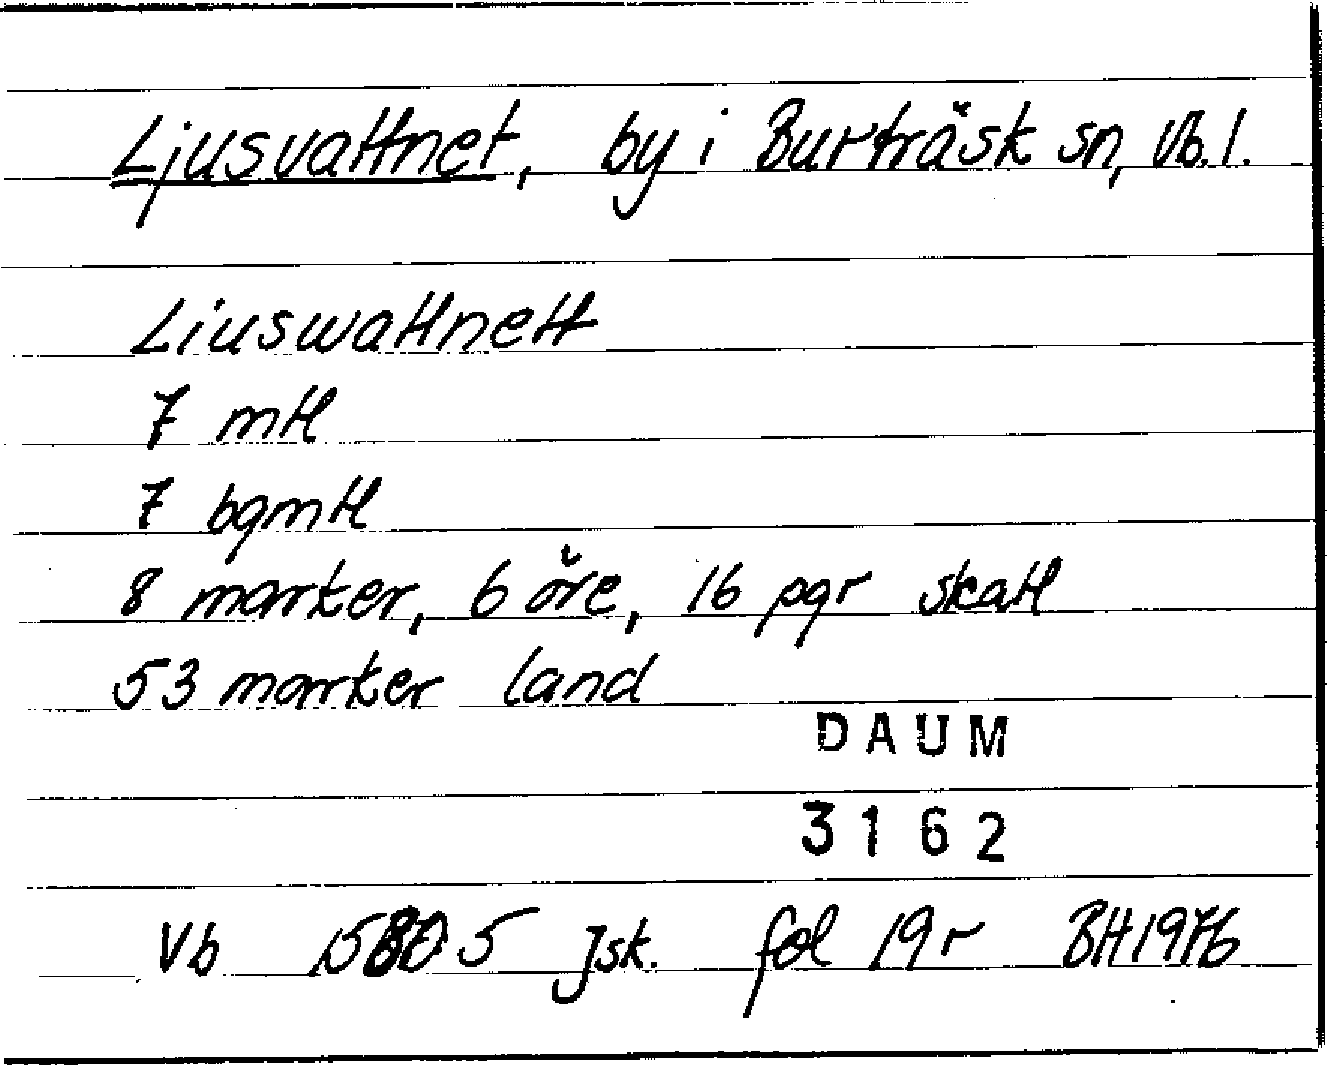 Ljusvattnet, by i Burträsk sn, Vb. l.
Liuswattnett
7 mtl
7 bgmtl
8 marker, 6 öre, 16 pgr skatt
53 marker land
DAUM
3162
Vb 5 Jsk. fol 19r BH1976